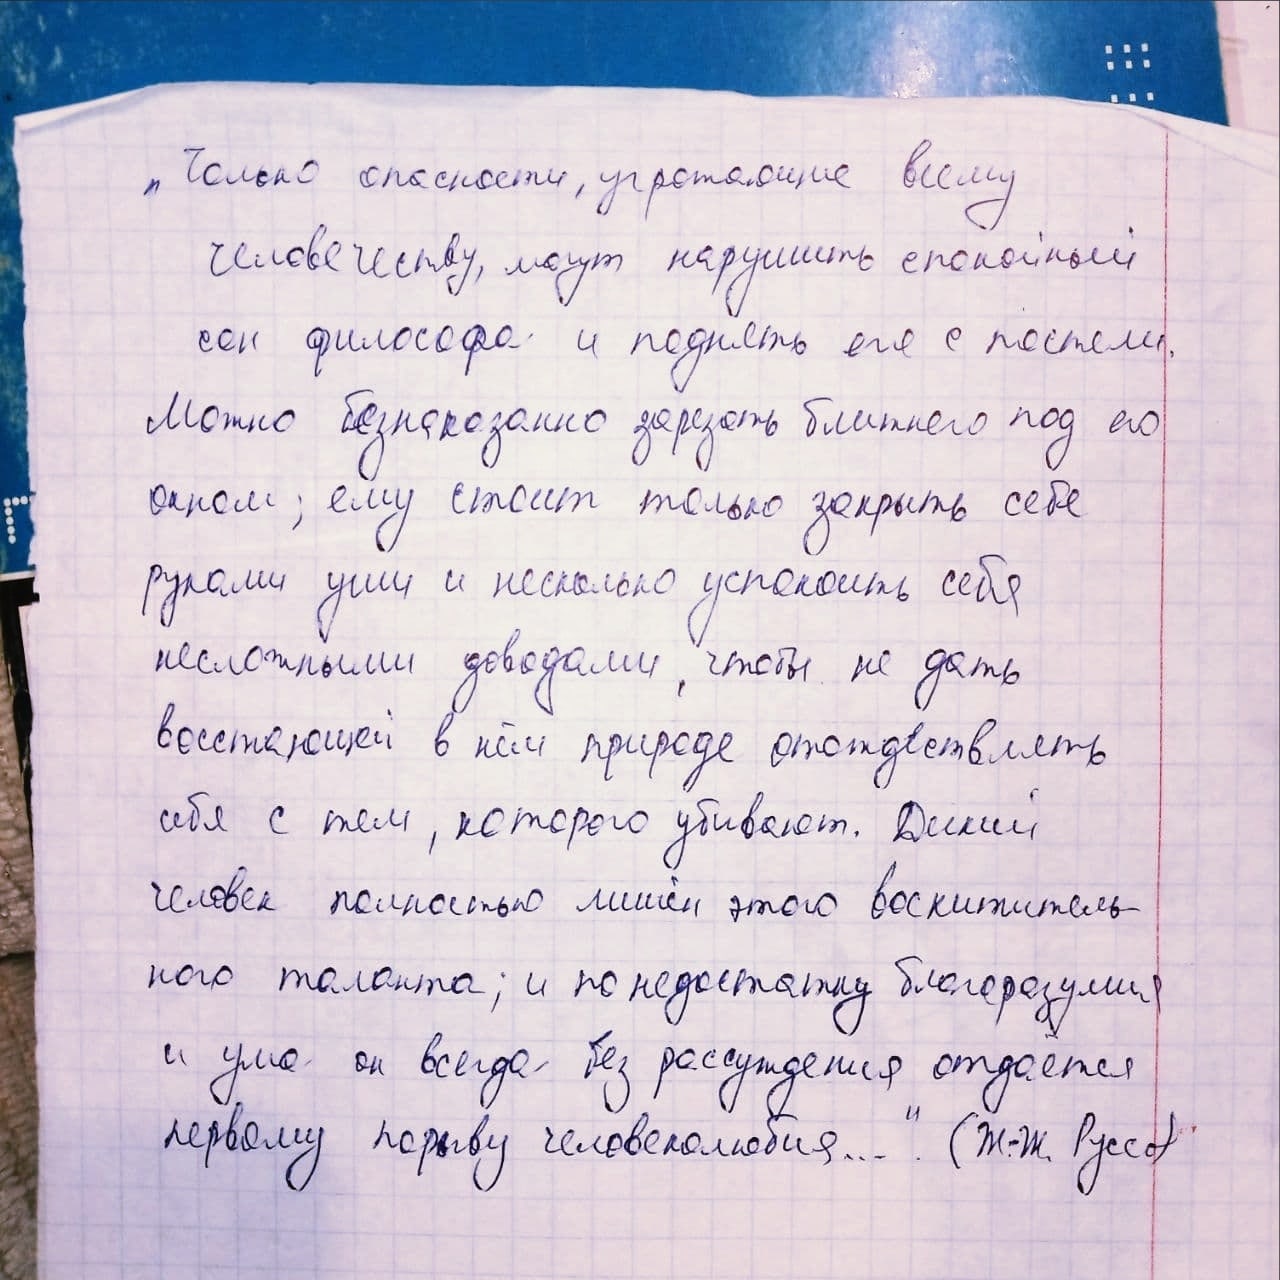 „Только опасности, угрожающие всему
человечеству, могут нарушить спокойный
сон философа и поднять его с постели.
Можно безнаказанно зарезать ближнего под его
окном; ему стоит только закрыть себе
руками уши и несколько успокоить себя
несложными доводами, чтобы не дать
восстающей в нём природе отождествлять
себя с тем, которого убивают. Дикий
человек полностью лишён этого восхититель-
ного таланта; и по недостатку благоразумия
и ума он всегда без рассуждения отдаётся
первому порыву человеколюбия...". (Ж.-Ж. Руссо)